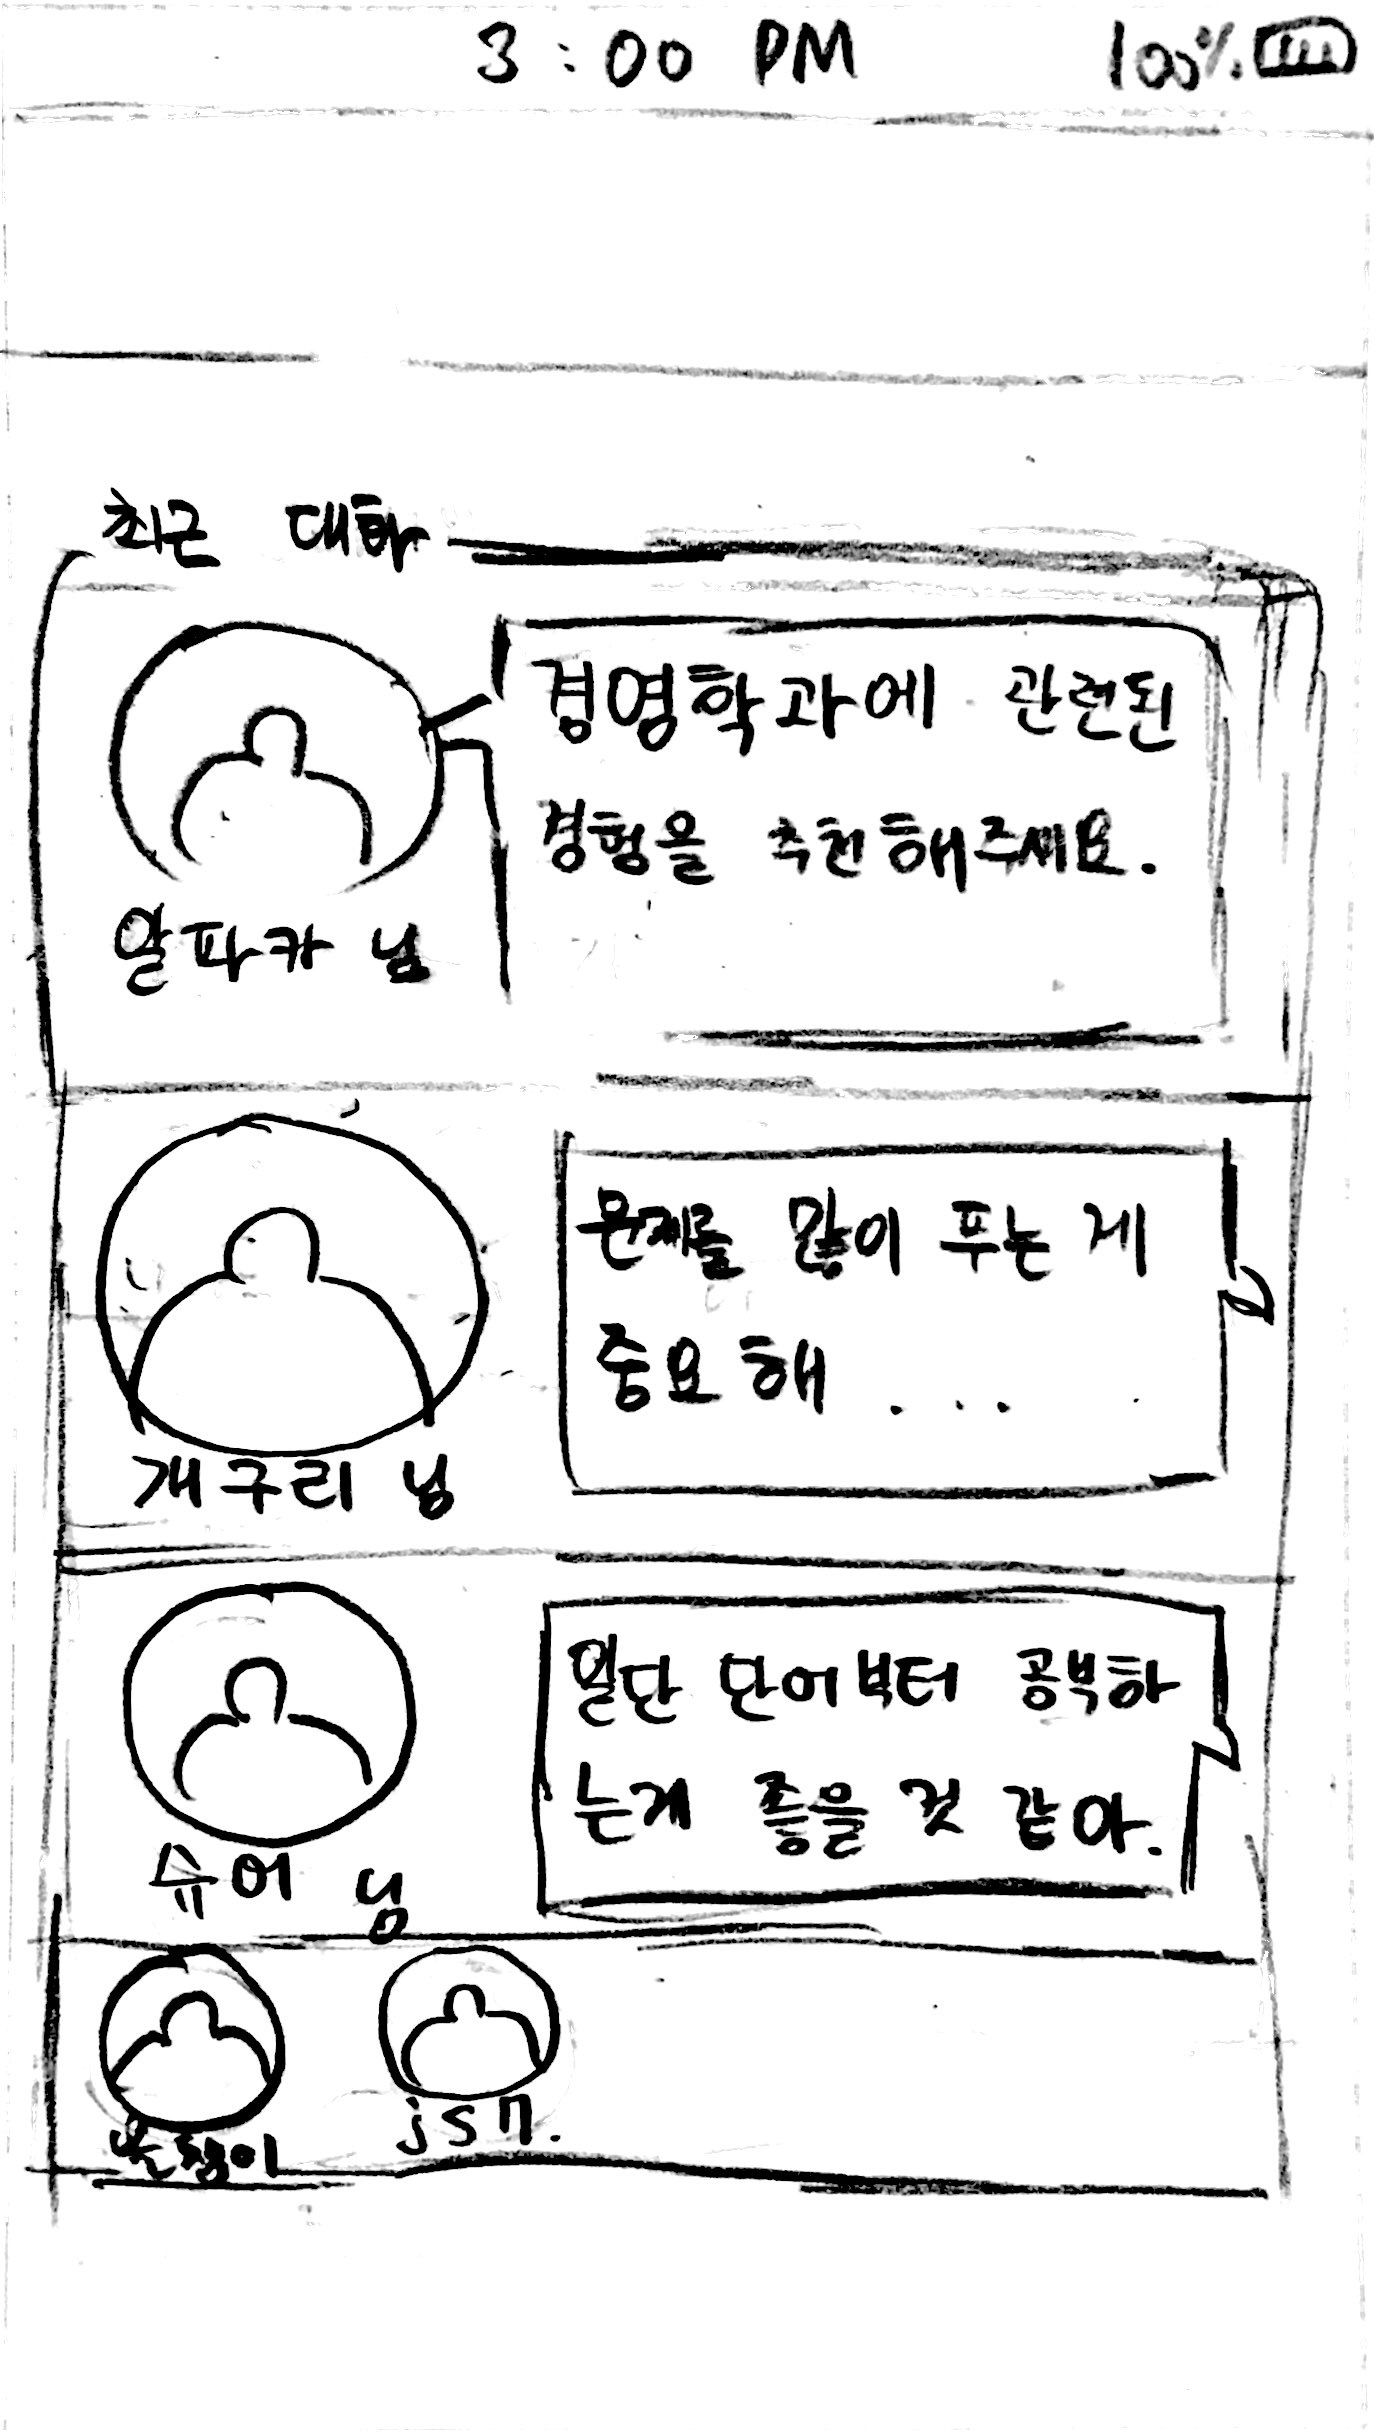 3:00 PM 100%
최근 대화
경영학과에 관련된
경험을 추천해주세요.
알파카 님
문제를 많이 푸는 게
중요해....
개구리 님
일단 단어부터 공부하
는게 좋을 것 같아.
슈어 님